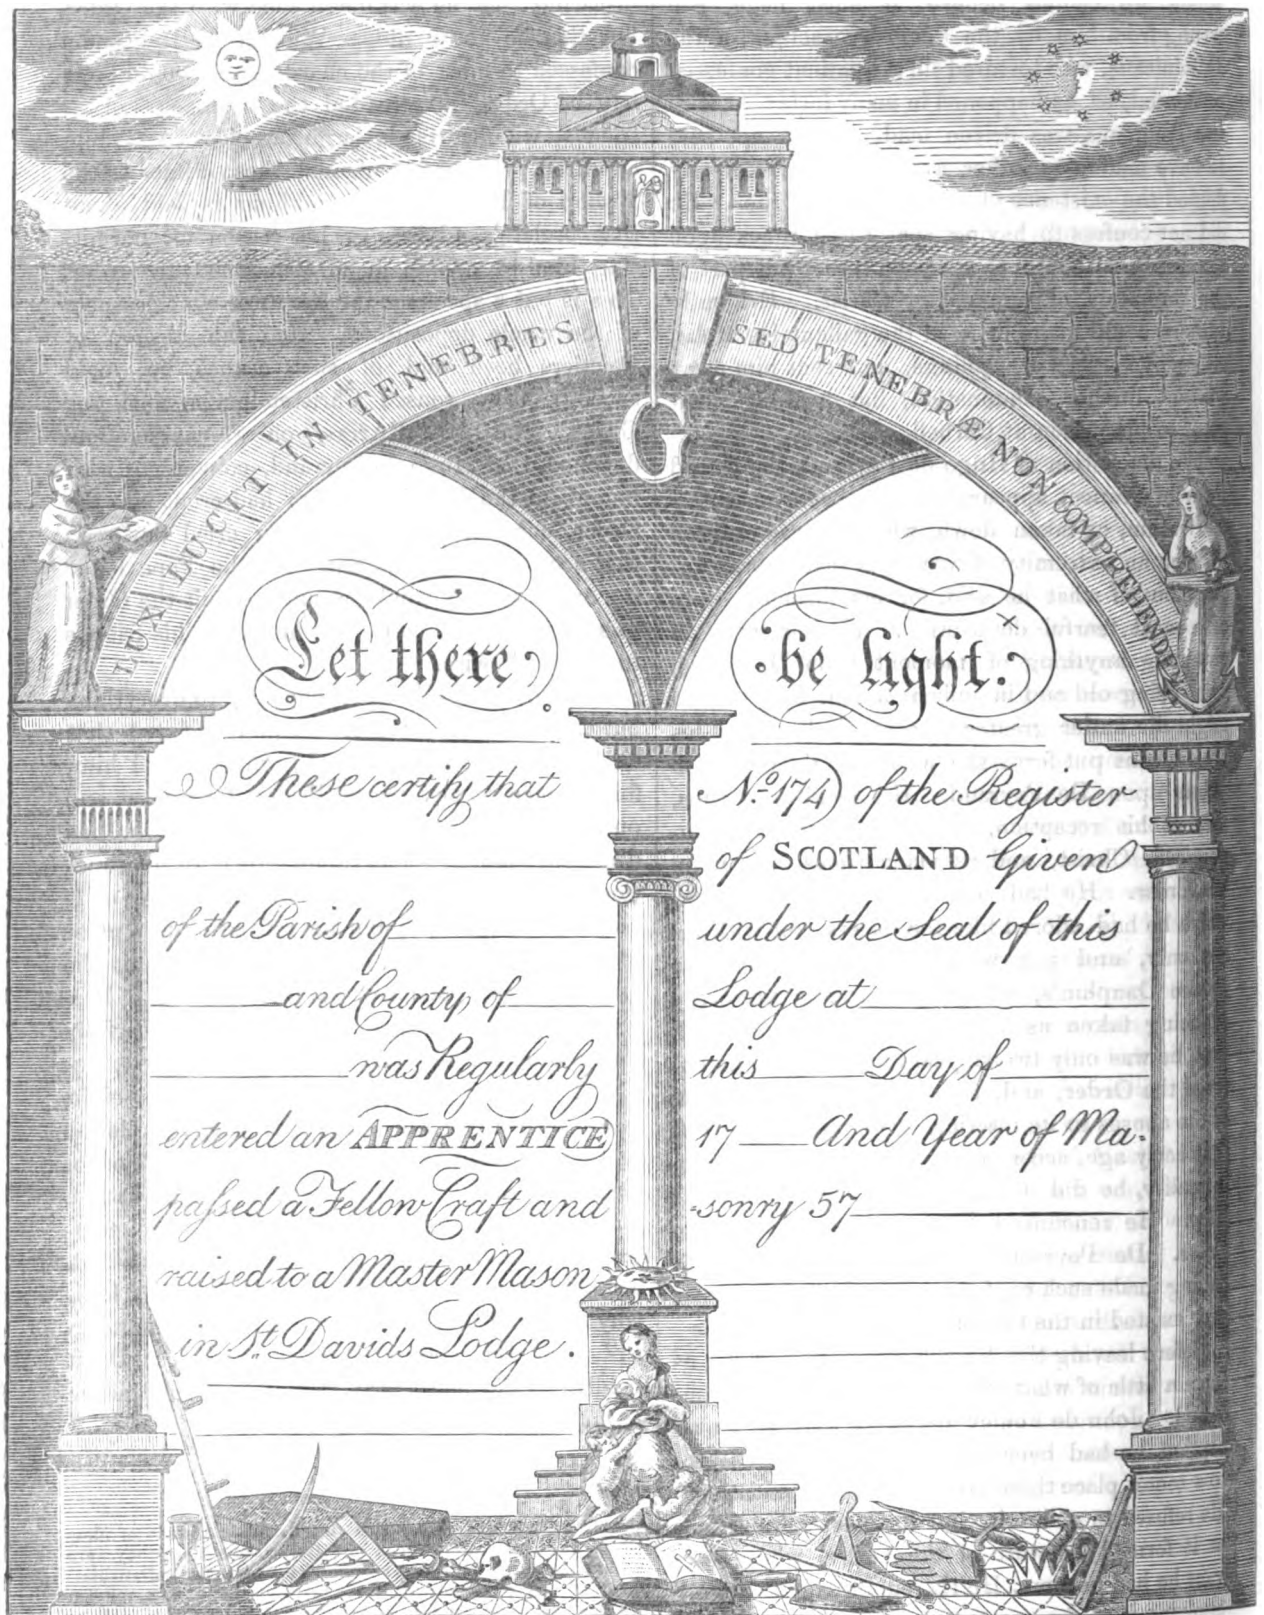 LUX LUCIT IN TENEBRES
SED TENEBRÆ NON COMPREHENDENT
G
Let there
be light.
These certify that
of the Parish of
and County of
was Regularly
entered an APPRENTICE
passed a Fellow Craft and
raised to a Master Mason
in St. Davids Lodge.
No. 174) of the Register
of SCOTLAND Given
under the Seal of this
Lodge at
this Day of
17 And Year of Ma-
-sonry 57